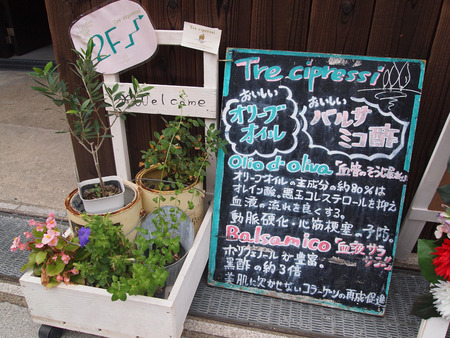 2F
Welcome
Tre cipressi
おいしい
オリーブ
オイル
おいしい
バルサ
ミコ酢
Olio d'oliva 「血管のそうじ屋さん」
オリーブオイルの主成分の約80%は
オレイン酸。悪玉コレステロールを抑え
血液の流れを良くする。
動脈硬化・心筋梗塞の予防。
Balsamico 「血液サラサラ
ポリフェノールが豊富。
黒酢の約3倍
美肌に欠かせないコラーゲンの再成促進